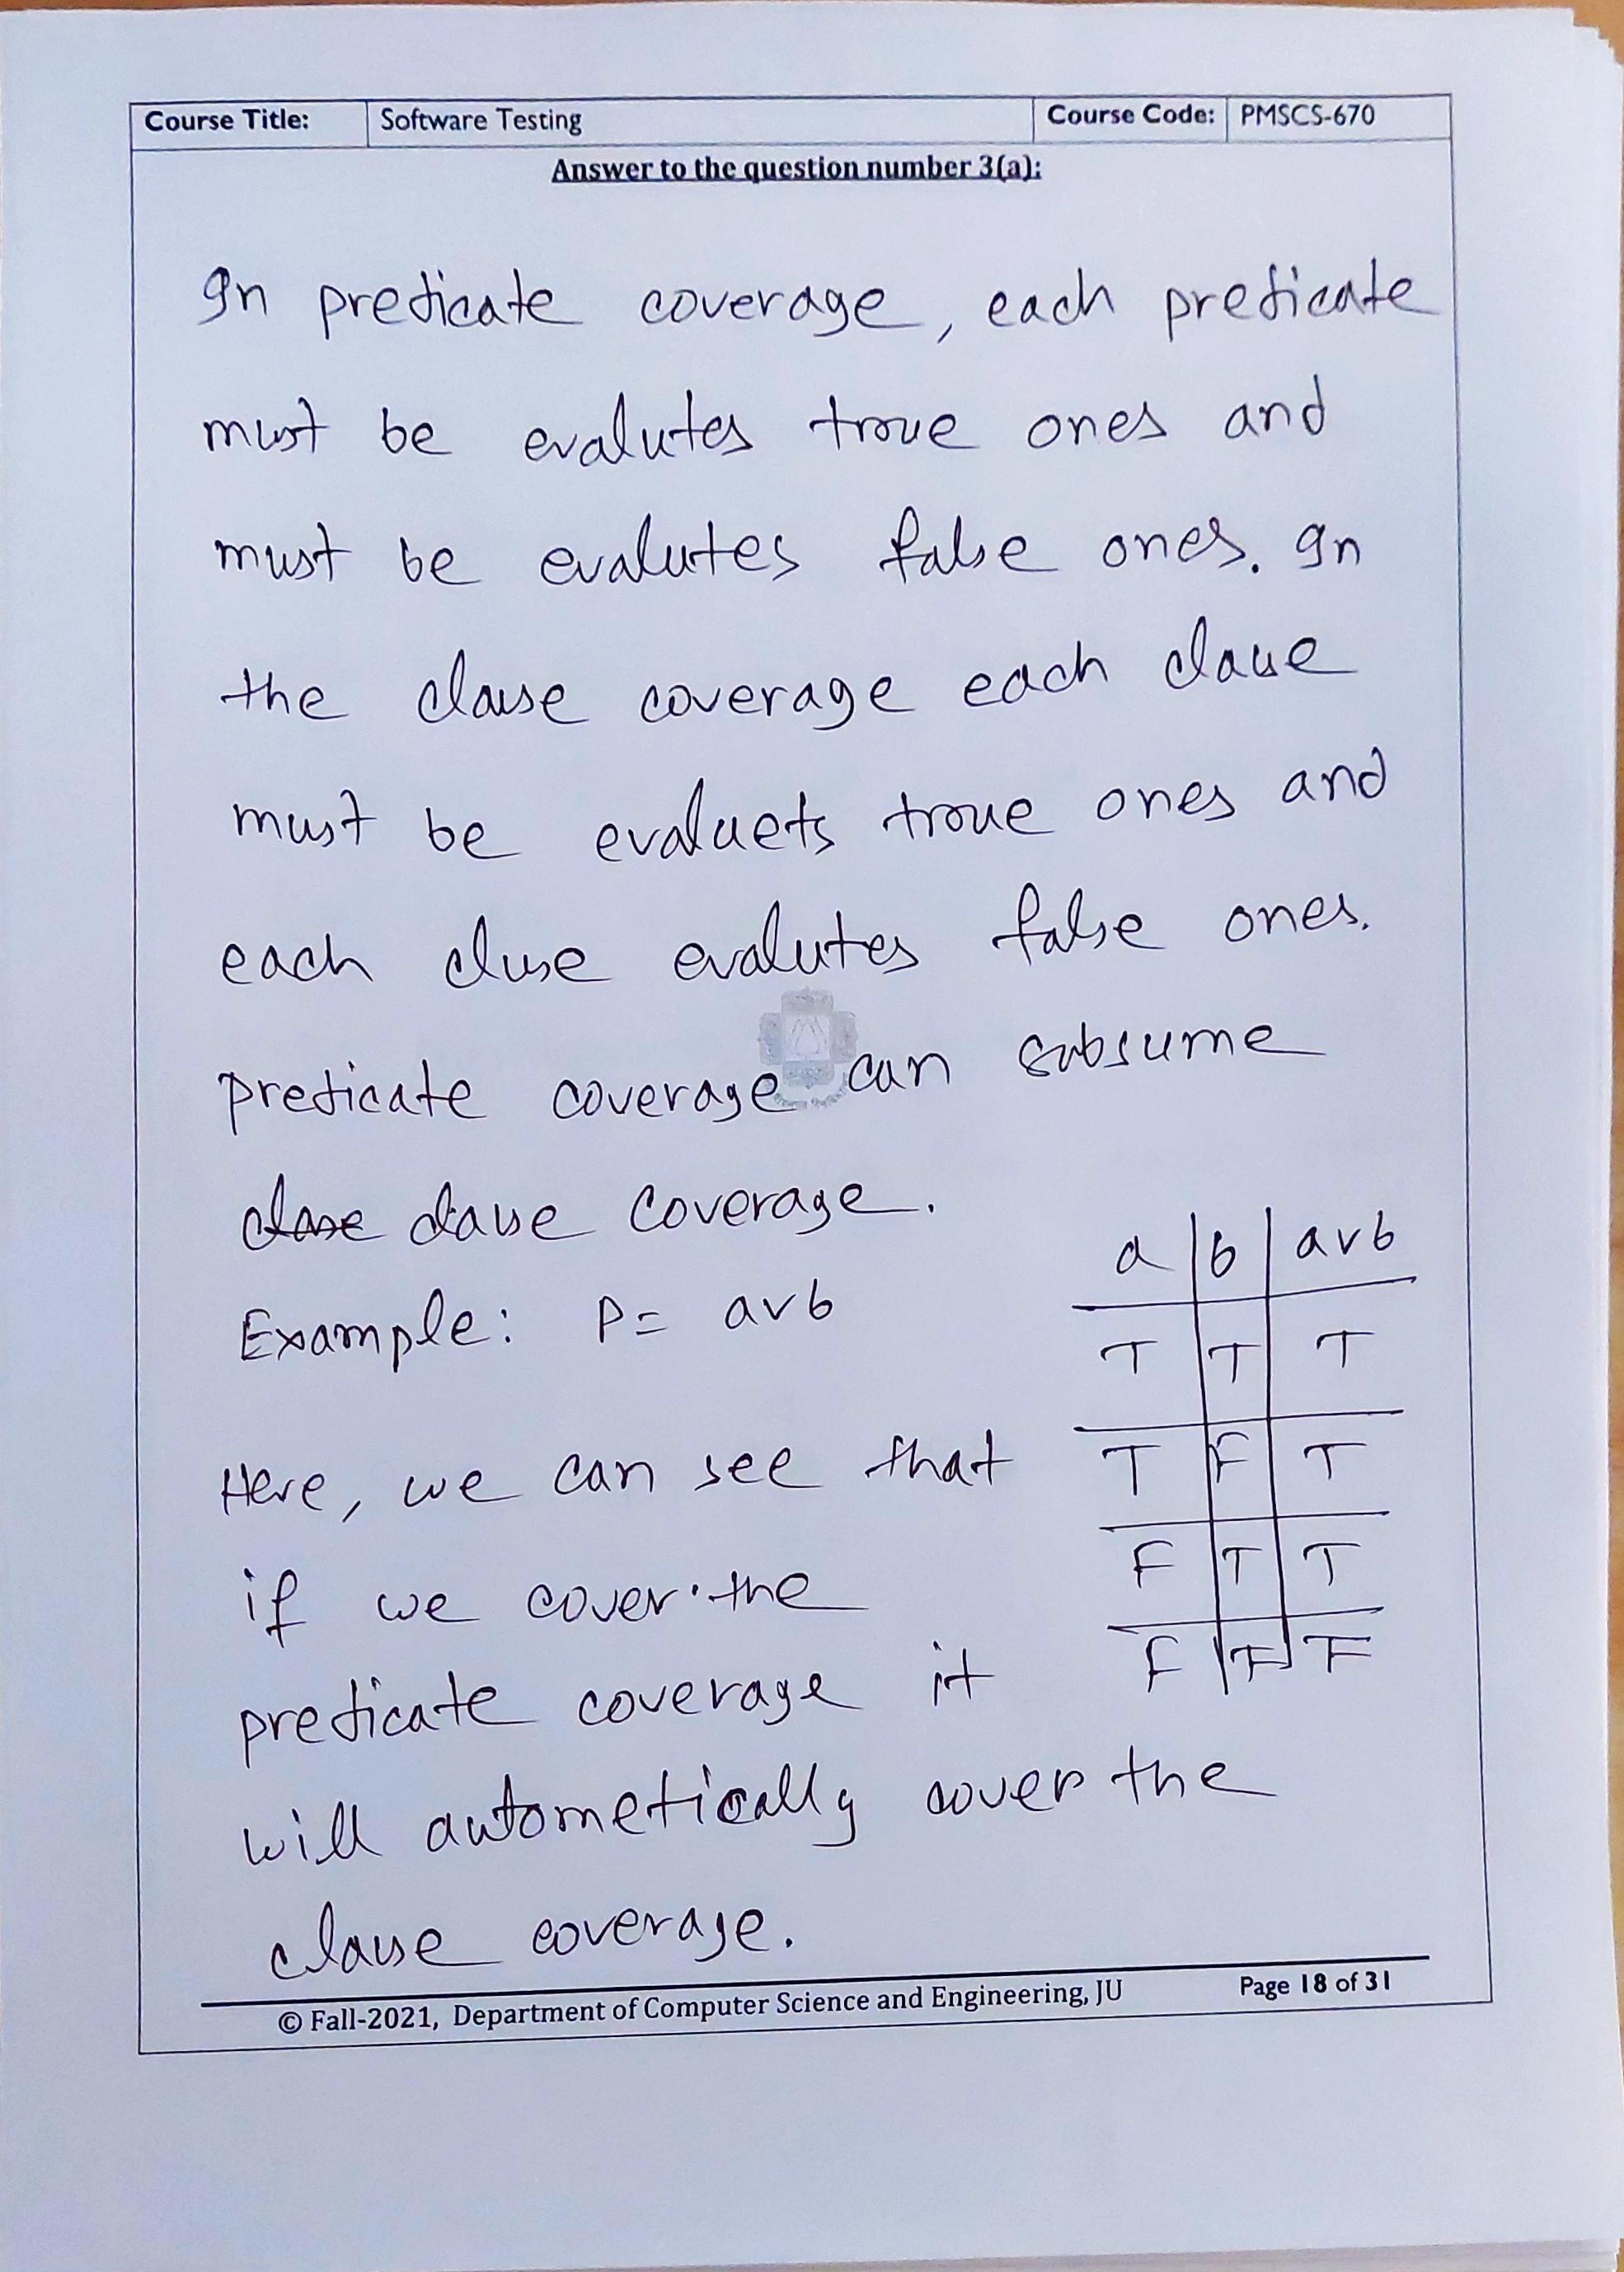 Course Title: Software Testing Course Code: PMSCS-670
Answer to the question number 3(a):
In predicate coverage, each predicate
must be evalutes true ones and
must be evalutes false ones. In
the clause coverage each clause
must be evaluets true ones and
each cluse evalutes false ones.
predicate coverage can subsume
clase clause coverage.
Example: P = a∨b
Here, we can see that
if we cover the
predicate coverage it
will autometically cover the
clause coverage.
a b a∨b
T T T
T F T
F T T
F F F
© Fall-2021, Department of Computer Science and Engineering, JU Page 18 of 31